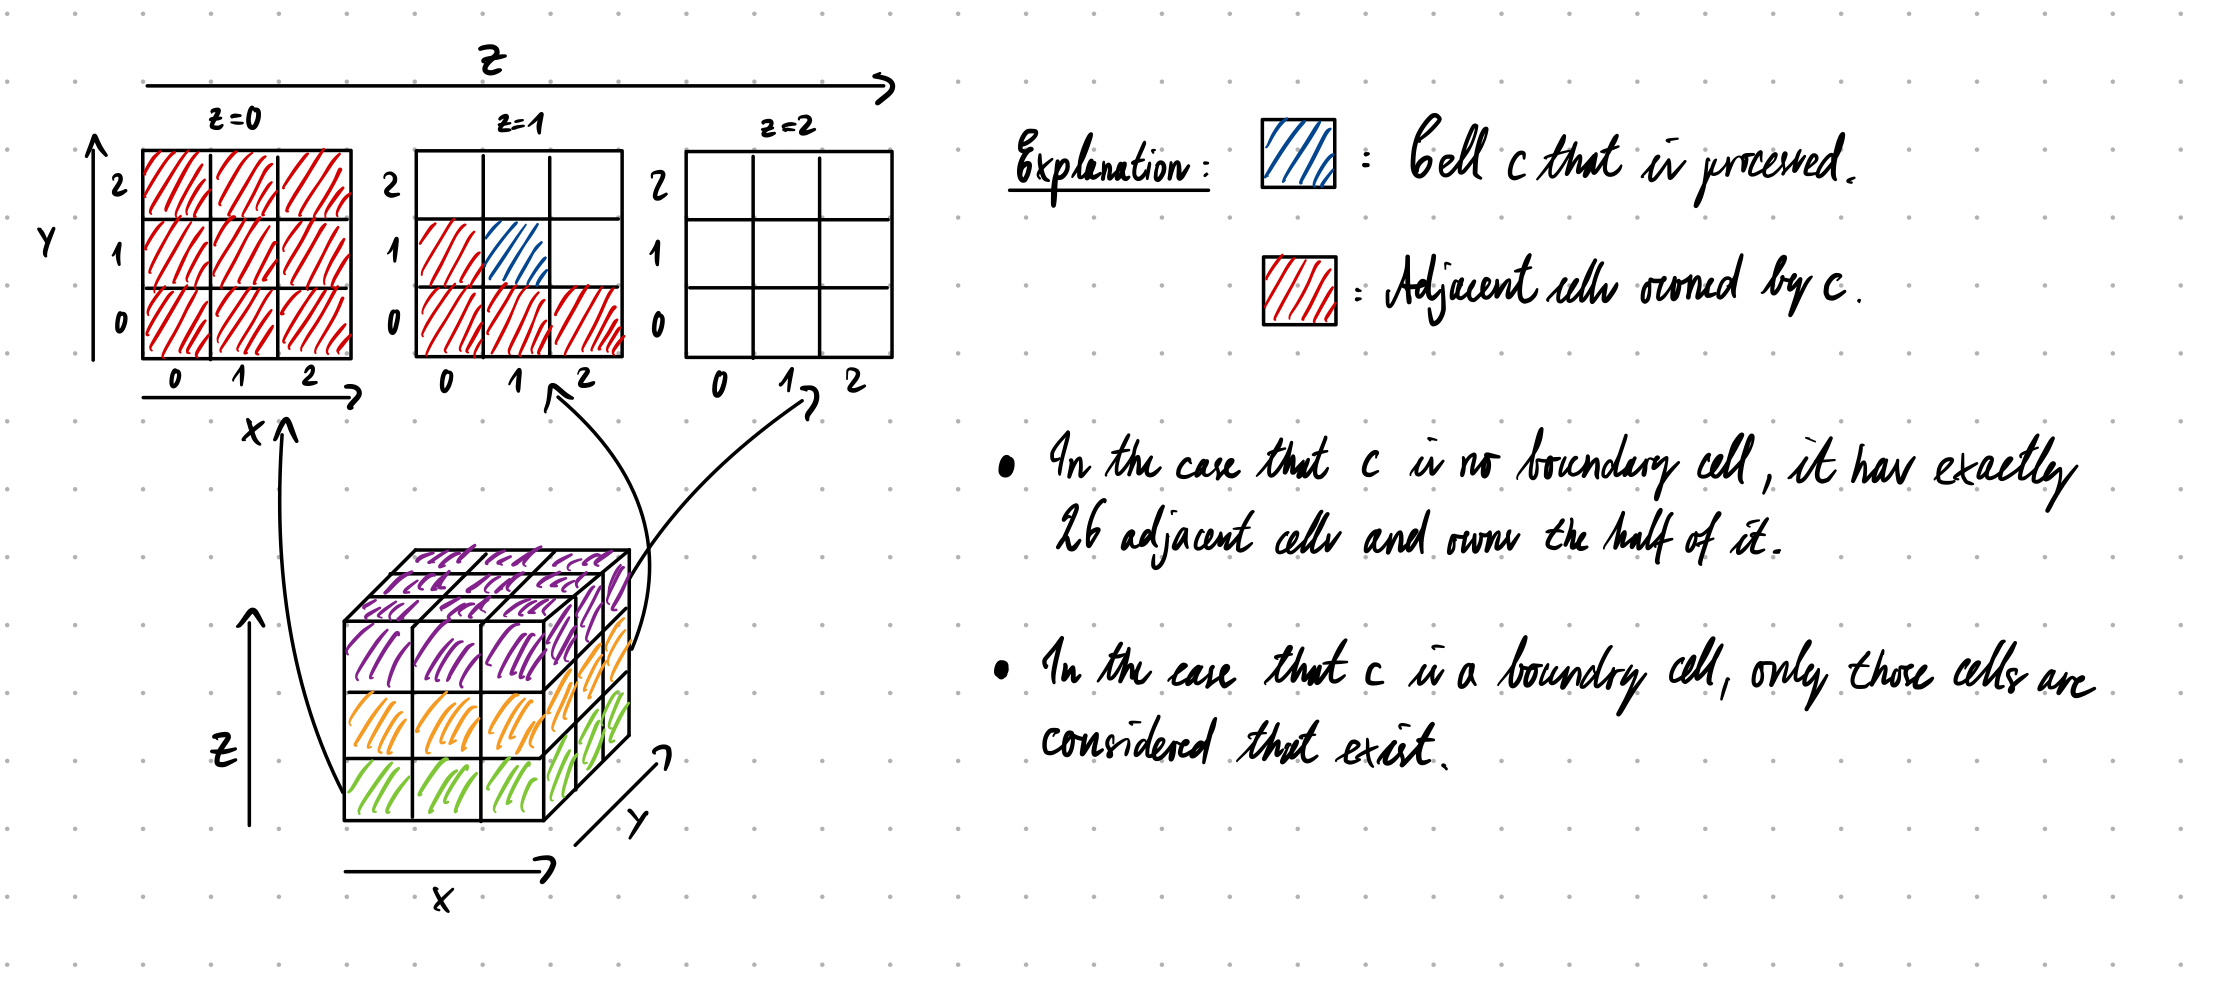 Z
z=0 z=1 z=2
Y
2 2 2
1 1 1
0 0 0
0 1 2 0 1 2 0 1 2
X
Z
Y
X
Explanation: : Cell c that is processed.
: Adjacent cells owned by c.
• In the case that c is no boundary cell, it has exactly
26 adjacent cells and owns the half of it.
• In the case that c is a boundry cell, only those cells are
considered that exist.